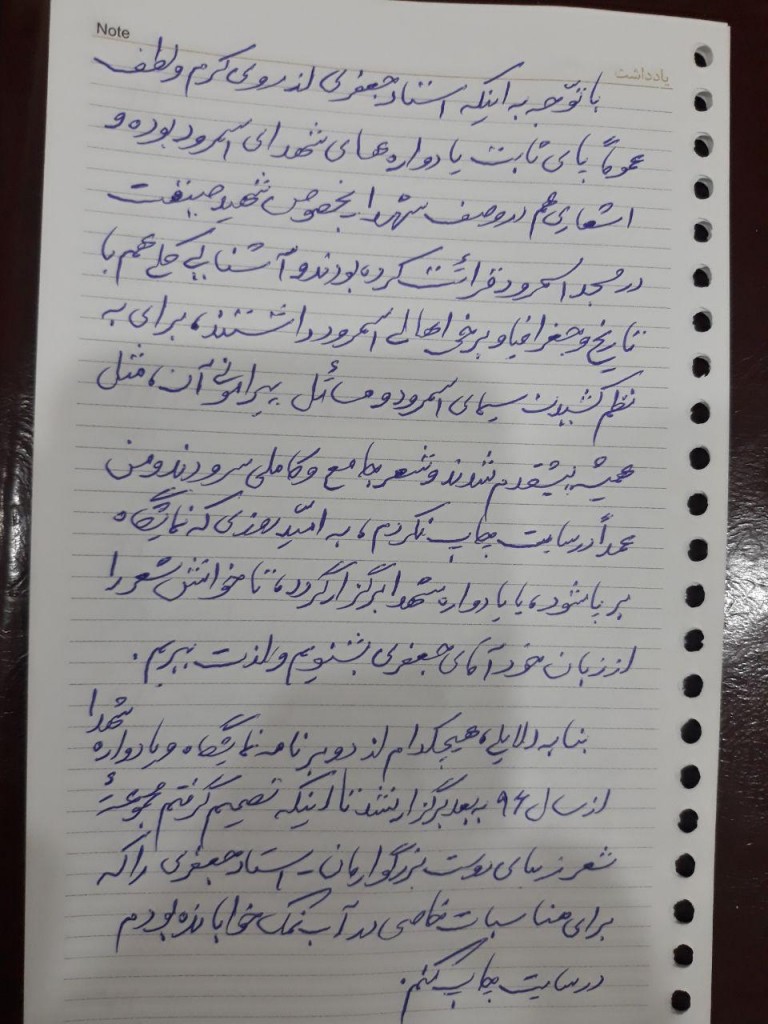 Note
یادداشت
با توجّه به اینکه استاد جعفری از روی کرم و لطف
عموماً پای ثابت یادواره های شهدای اسمرود بوده و
اشعاری هم در وصف شهدا بخصوص شهید
در مسجد اسمرود قرائت کرده بودند و آشنایی کلی هم با
تاریخ و جغرافیا و برخی اهالی اسمرود داشتند، برای به
نظم کشیدن سیمای اسمرود و مسائل پیرامونی آن، مثل
همیشه پیشقدم شدند و شعر جامع و کاملی سرودند و من
عمداً در سایت چاپ نکردم، به امّید روزی که نمایشگاه
بر پا شود، یا یادواره شهدا برگزار گردد، تا خوانش شعر را
از زبان خود آقای جعفری بشنویم و لذت ببریم.
بنا به دلایلی، هیچکدام از دو برنامه نمایشگاه و یادواره شهدا
از سال ۹۶ ببعد برگزار نشد تا اینکه تصمیم گرفتم مجموعهٔ
شعر زیبای دوست بزرگوارمان - استاد جعفری را که
برای مناسبات خاصی در آب نمک خوابانده بودم
در سایت چاپ کنم.